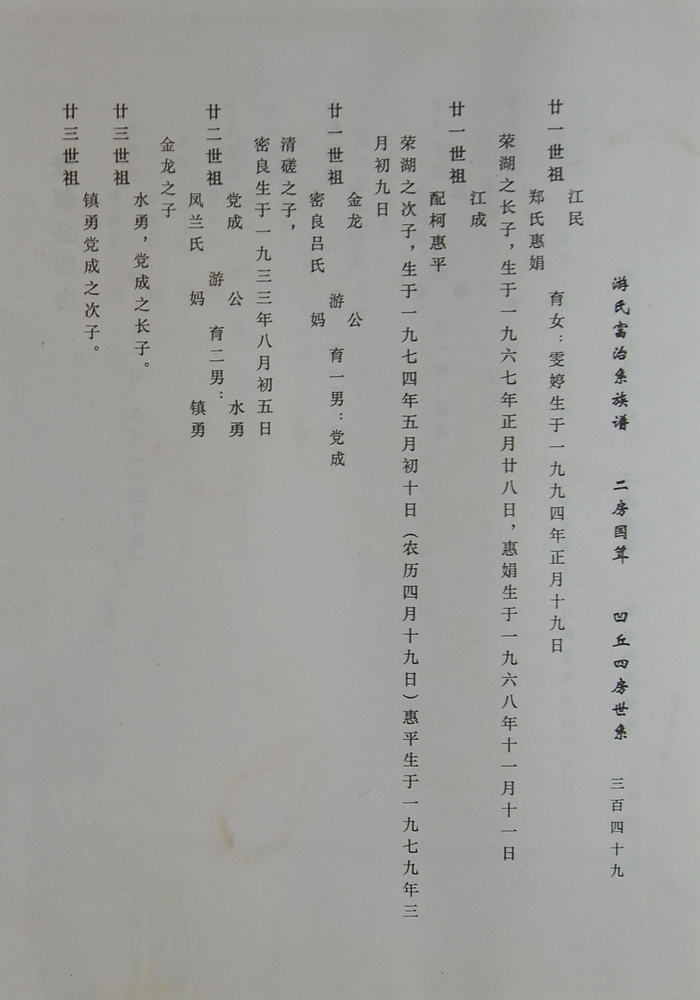 游氏富治系族谱 二房国茸 凹丘四房世系 三百四十九
江民
廿一世祖 育女：雯婷生于一九九四年正月十九日
郑氏惠娟
荣湖之长子，生于一九六七年正月廿八日，惠娟生于一九六八年十一月十一日
江成
廿一世祖
配柯惠平
荣湖之次子，生于一九七四年五月初十日（农历四月十九日）惠平生于一九七九年三
月初九日
金龙 公
廿一世祖 游 育一男：党成
密良吕氏 妈
清磋之子，
密良生于一九三三年八月初五日
党成 公 水勇
廿二世祖 游 育二男：
凤兰氏 妈 镇勇
金龙之子
水勇，党成之长子。
廿三世祖
镇勇党成之次子。
廿三世祖